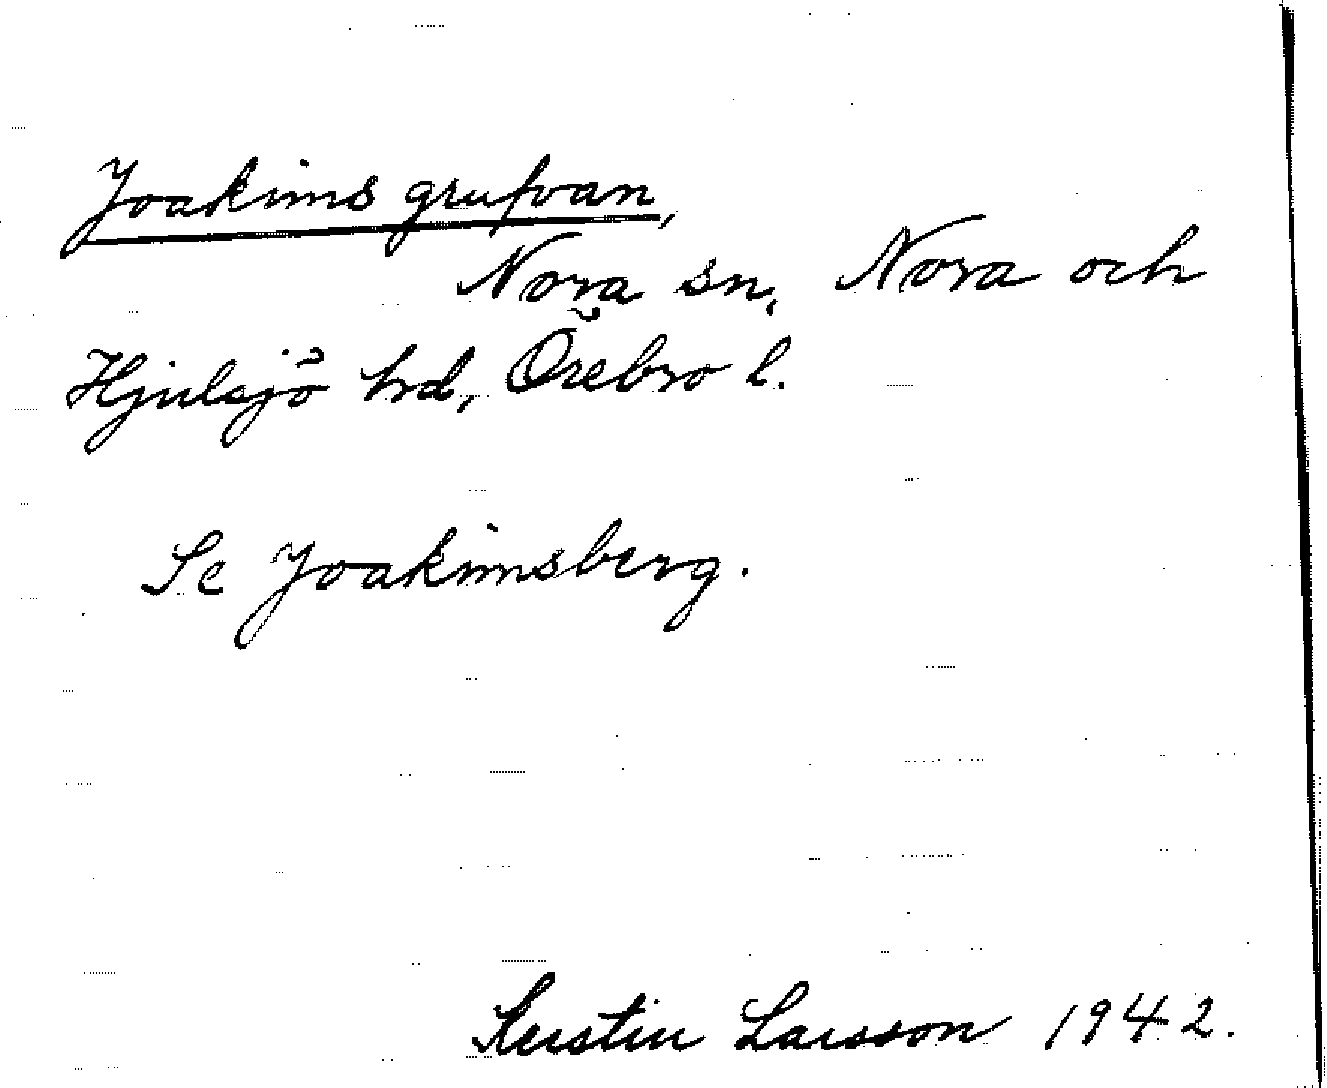 Joakims grufvan,
Nora sn, Nora och
Hjulsjö hrd, Örebro l.
Se Joakimsberg.
Kerstin Larsson 1942.